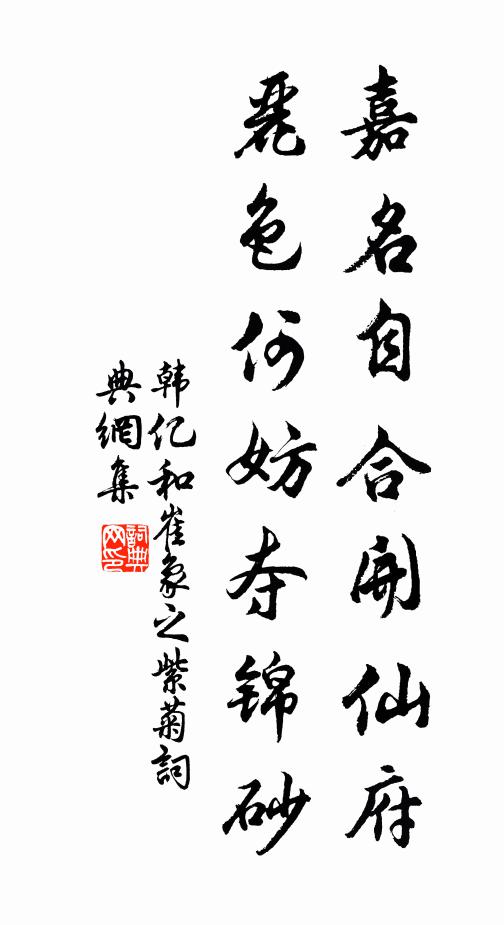 嘉名自合開仙府
麗色何妨夺锦砂
韩亿和崔象之紫菊詞
典網集
詞典网印